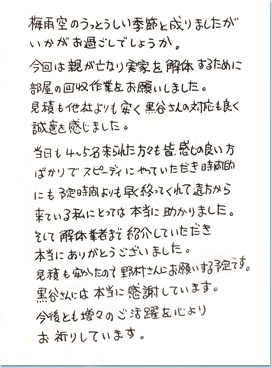 梅雨空のうっとうしい季節と成りましたが
いかがお過ごしでしょうか。
今回は親が亡くなり実家を解体するために
部屋の回収作業をお願いしました。
見積も他社よりも安く黒谷さんの対応も良く
誠意を感じました。
当日も4〜5名来られた方々も皆、感じの良い方
ばかりでスピーディにやっていただき時間的
にも予定時間よりも早く終ってくれて遠方から
来ている私にとっては本当に助かりました。
そして解体業者まで紹介していただき
本当にありがとうございました。
見積も安かったので野村さんにお願いする予定です。
黒谷さんには本当に感謝しています。
今後とも増々のご活躍を心より
お祈りしています。